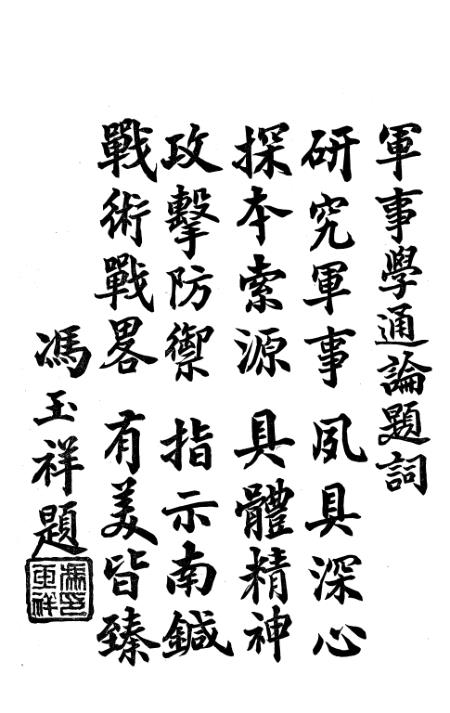 軍事學通論題詞
研究軍事 夙具深心
探本索源 具體精神
攻擊防禦 指示南鍼
戰術戰畧 有美皆臻
馮玉祥題